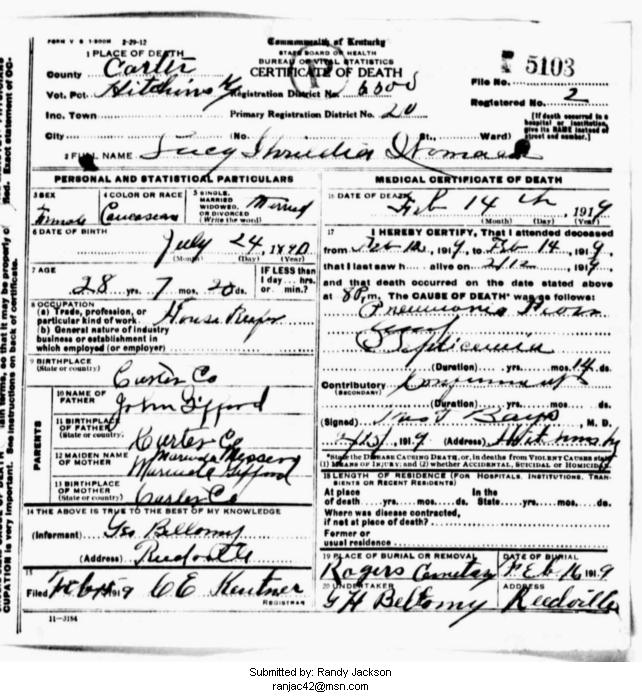 FORM V S 1-500M 2-29-12
Commonwealth of Kentucky
STATE BOARD OF HEALTH
BUREAU OF VITAL STATISTICS
CERTIFICATE OF DEATH
1 PLACE OF DEATH
County Carter
Vot. Pct. Hitchins Ky Registration District No.
Inc. Town Primary Registration District No. 20
City (No. St., Ward)
File No. 5103
Registered No. 2
[If death occurred in a hospital or institution, give its NAME instead of street and number.]
2 FULL NAME Lucy
PERSONAL AND STATISTICAL PARTICULARS
3 SEX Female
4 COLOR OR RACE Caucasian
5 SINGLE, MARRIED WIDOWED, OR DIVORCED (Write the word) Married
6 DATE OF BIRTH July 24, 1890
(Month) (Day) (Year)
7 AGE 28 yrs. 7 mos. 20 ds.
IF LESS than 1 day... hrs. or... min.?
8 OCCUPATION
(a) Trade, profession, or particular kind of work House Keeper
(b) General nature of industry business or establishment in which employed (or employer)
9 BIRTHPLACE
(State or country) Carter Co
PARENTS
10 NAME OF FATHER John Gifford
11 BIRTHPLACE OF FATHER (State or country) Carter Co
12 MAIDEN NAME OF MOTHER
Gifford
13 BIRTHPLACE OF MOTHER (State or country) Carter Co
14 THE ABOVE IS TRUE TO THE BEST OF MY KNOWLEDGE
(Informant) Geo Bellomy
(Address) Reedville
15
Filed Feb 1919 CE
REGISTRAR
11-3184
MEDICAL CERTIFICATE OF DEATH
16 DATE OF DEATH Feb 14 th, 1919
(Month) (Day) (Year)
17 I HEREBY CERTIFY, That I attended deceased
from Feb 12, 1919, to Feb 14, 1919,
that I last saw h alive on 2/12, 1919
and that death occurred on the date stated above
at 8 P.m. The CAUSE OF DEATH* was as follows:
Pneumonia
Septicemia
(Duration) yrs. mos. 14 ds.
Contributory
(SECONDARY)
(Duration) yrs. mos. ds.
(Signed) M. D.
1919 (Address) Hitchins Ky
*State the DISEASE CAUSING DEATH, or, in deaths from VIOLENT CAUSES state (1) MEANS OF INJURY; and (2) whether ACCIDENTAL, SUICIDAL or HOMICIDAL
18 LENGTH OF RESIDENCE (FOR HOSPITALS, INSTITUTIONS, TRANSIENTS OR RECENT RESIDENTS)
At place of death yrs. mos. ds. In the State yrs. mos. ds.
Where was disease contracted, if not at place of death?
Former or usual residence
19 PLACE OF BURIAL OR REMOVAL Rogers Cemetary
DATE OF BURIAL Feb 16 1919
20 UNDERTAKER G H Bellomy
ADDRESS Reedville
Submitted by: Randy Jackson
ranjac42@msn.com